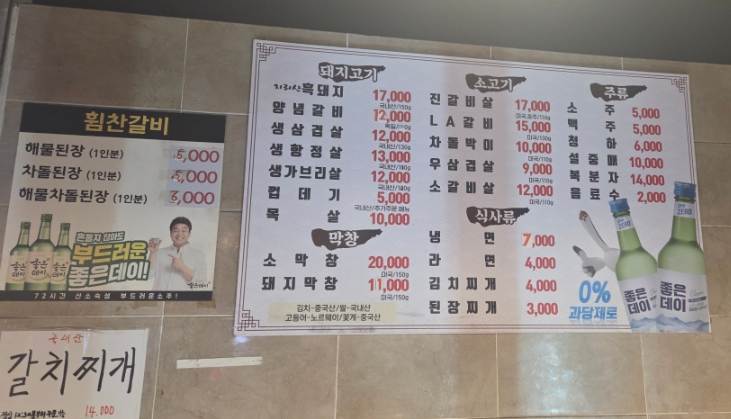 휨찬갈비
해물된장 (1인분) 5,000
차돌된장 (1인분) 5,000
해물차돌된장 (1인분) 6,000
흔들지 않아도
부드러운
좋은데이!
좋은데이
72시간 산소숙성 부드러운소주!
국내산
갈치찌개
14.000
돼지고기
지리산흑돼지 17,000
국내산/150g
양념갈비 12,000
생삼겹살 12,000
국내산/130g
생항정살 13,000
국내산/180g
생가브리살 12,000
국내산/180g
껍데기 5,000
국내산/추가주문 메뉴
목살 10,000
막창
소막창 20,000
미국/150g
돼지막창 11,000
미국/150g
김치-중국산/쌀-국내산
고등어-노르웨이/꽃게-중국산
소고기
진갈비살 17,000
LA갈비 15,000
미국/130g
차돌박이 10,000
미국/110g
우삼겹살 9,000
미국/110g
소갈비살 12,000
미국/110g
식사류
냉면 7,000
라면 4,000
김치찌개 4,000
된장찌개 3,000
주류
소주 5,000
맥주 5,000
청하 6,000
설중매 10,000
복분자 14,000
음료수 2,000
0%
과당제로
좋은데이
좋은데이